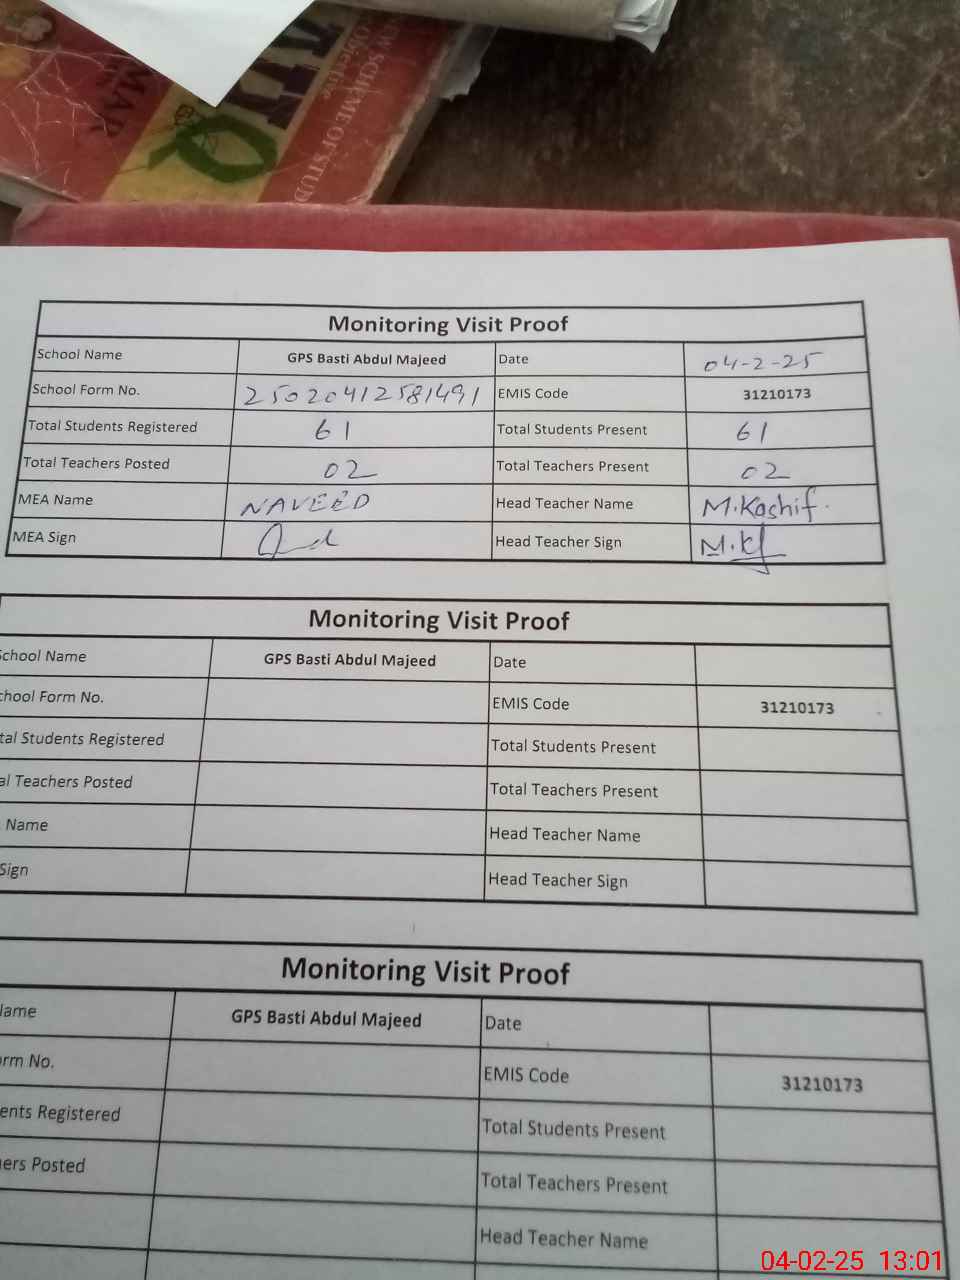 NEW SCHEME OF STUD
Objective
MAR
Monitoring Visit Proof
School Name GPS Basti Abdul Majeed Date 04-2-25
School Form No. 25020412581491 EMIS Code 31210173
Total Students Registered 61 Total Students Present 61
Total Teachers Posted 02 Total Teachers Present 02
MEA Name NAVEED Head Teacher Name M.Kashif.
MEA Sign Head Teacher Sign M.K
Monitoring Visit Proof
School Name GPS Basti Abdul Majeed Date
chool Form No. EMIS Code 31210173
tal Students Registered Total Students Present
al Teachers Posted Total Teachers Present
Name Head Teacher Name
Sign Head Teacher Sign
Monitoring Visit Proof
Name GPS Basti Abdul Majeed Date
orm No. EMIS Code 31210173
ents Registered Total Students Present
ers Posted Total Teachers Present
Head Teacher Name
04-02-25 13:01